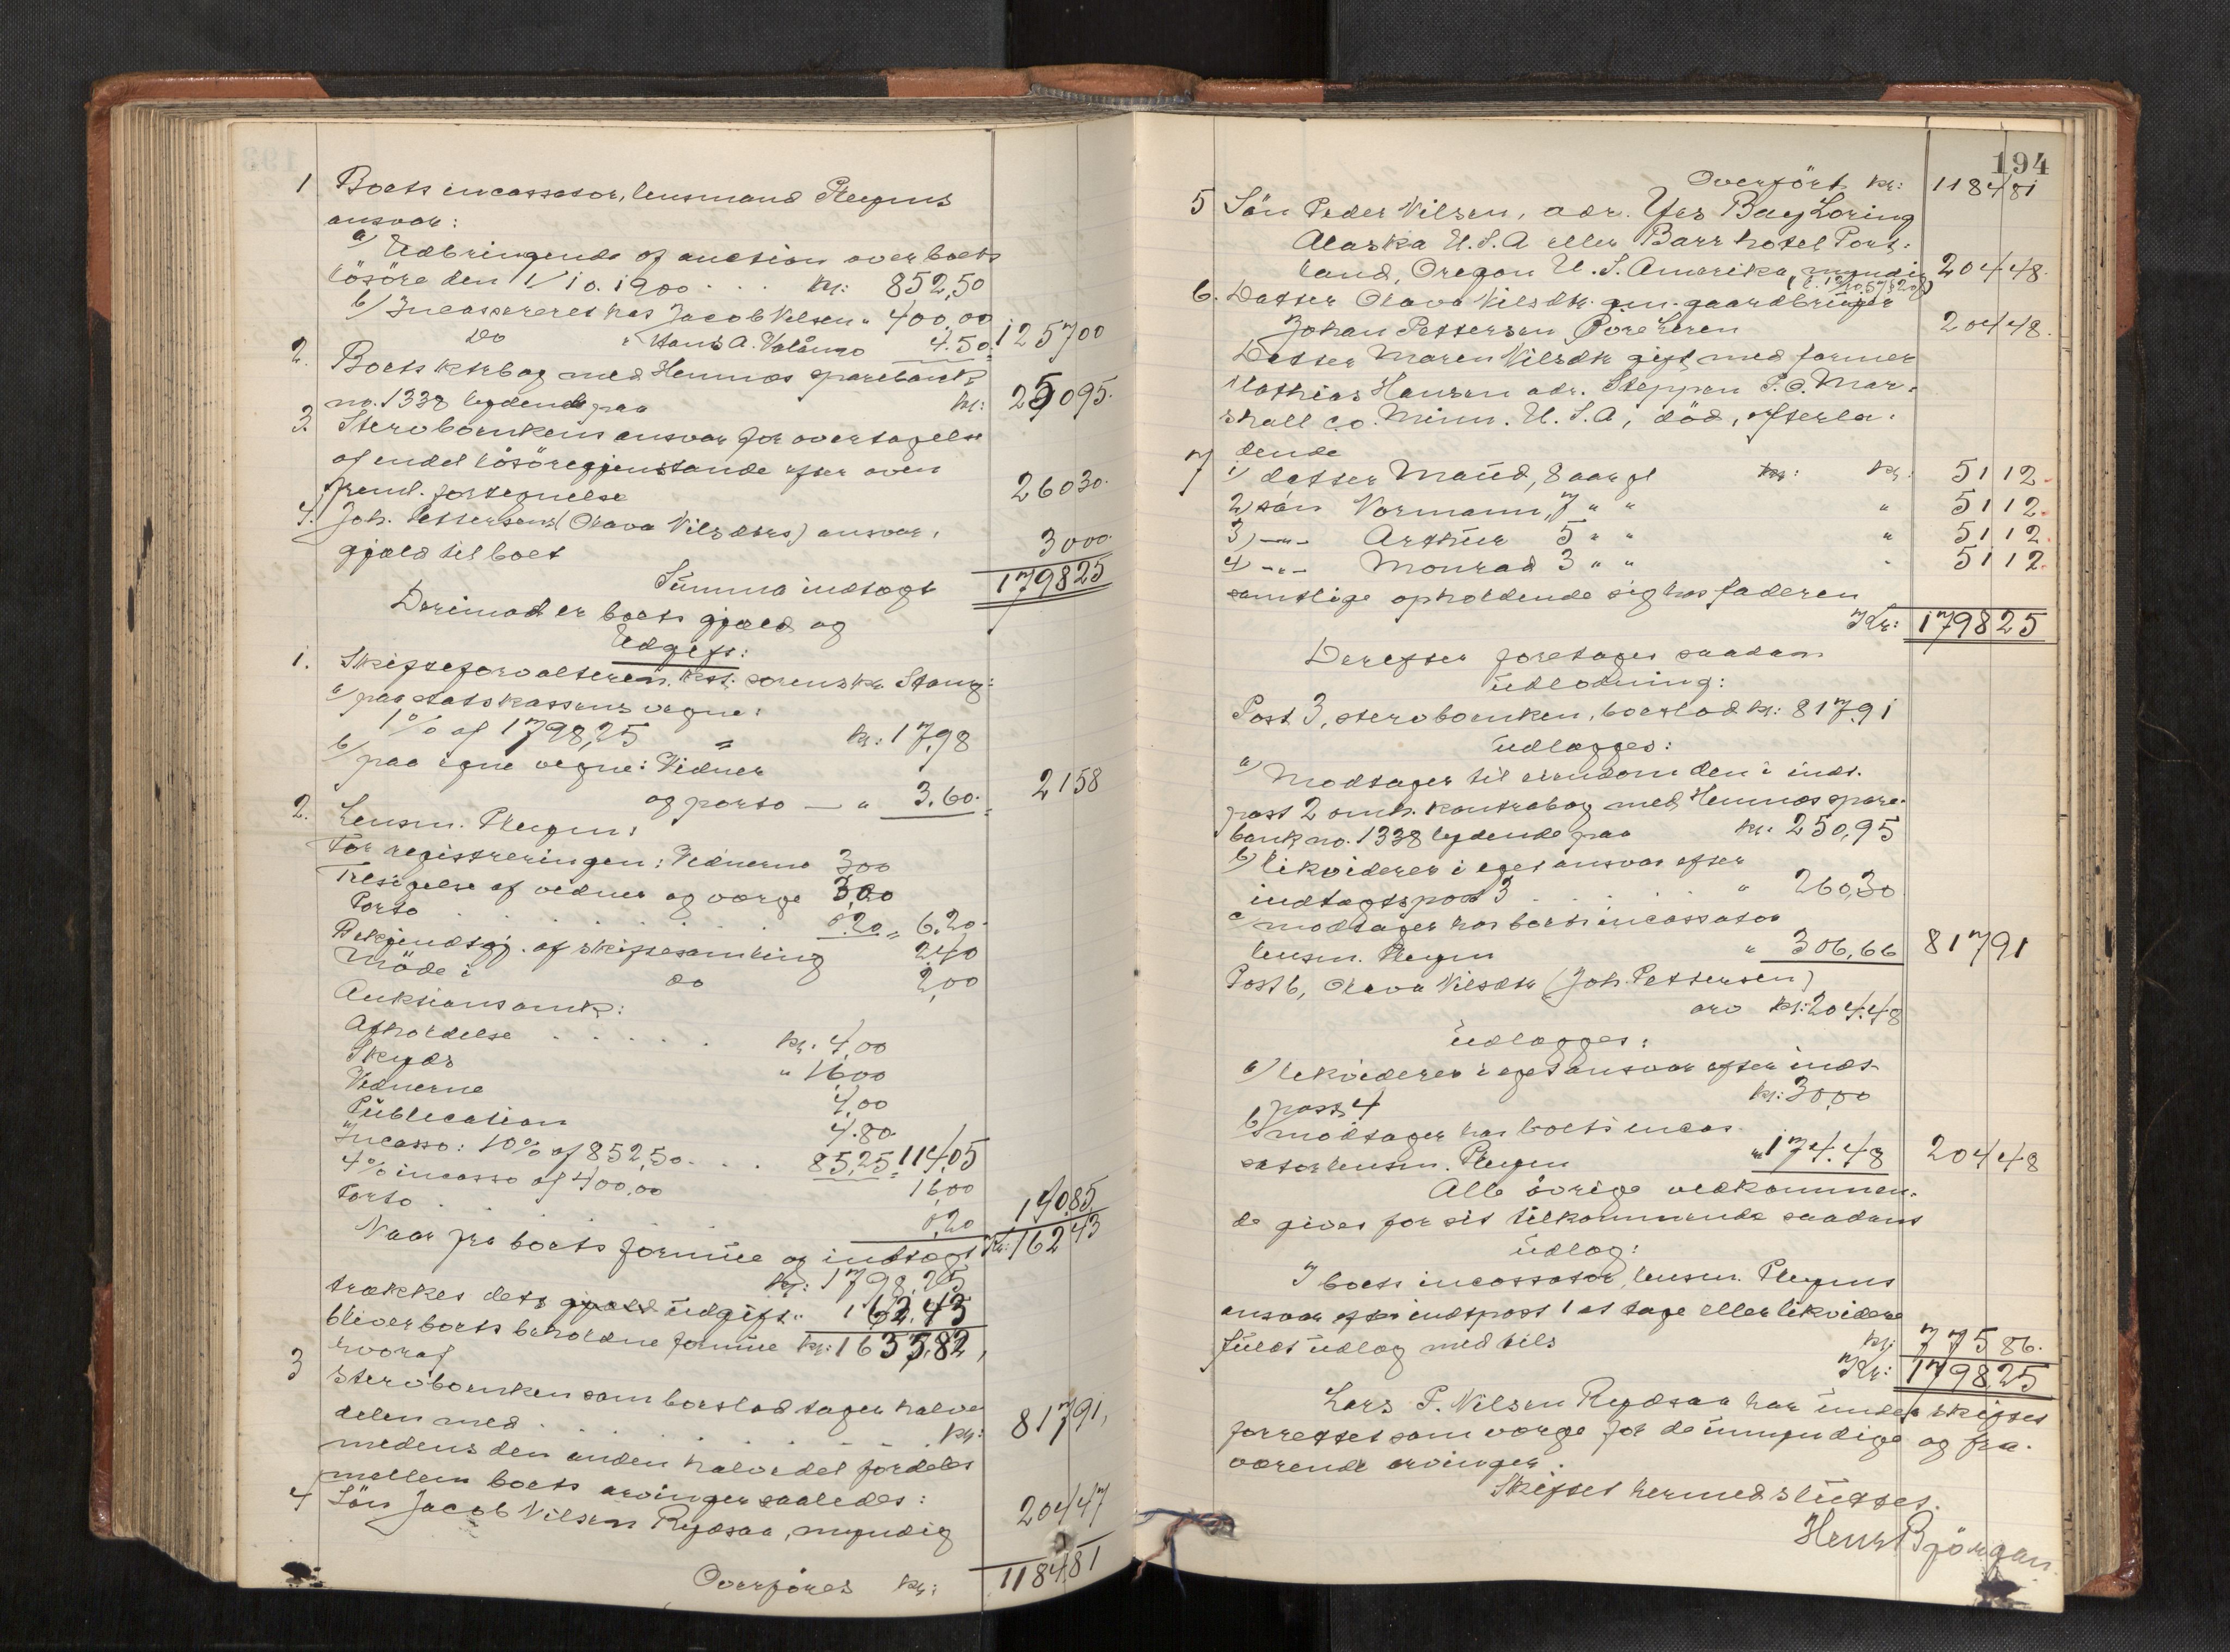 1 Boets incassator, lensmand Pleyms
ansvar:
a) Udbringende af auction over boets
lösöre den 1/10.1900 . . . kr: 852,50
b) Incassereret hos Jacob Nilsen " 400,00
Do " Hans A. Valåmo 4.50 125700
2. Boets ktrbog med Hemnes sparebank
no. 1338 lydende paa kr: 25095.
3. Stervboenkens ansvar for overtagelse
af endel lösöregjenstande efter oven
freml. fortegnelse 26030.
4. Joh. Pettersens (Olava Nilsdtrs) ansvar,
gjæld til boet 3000.
Summa indtægt 179825
Derimod er boets gjæld og
Udgift:
1. Skifteforvalteren, kst. sorenskr. Stang:
a) paa statskassens vegne:
1% af 1798,25 = kr: 17,98
b) paa egne vegne: Vidner
og porto — " 3.60. 2158
2. Lensm. Pleym:
For registreringen: Vidnerne 300
Tilsigelse af vidner og værge 3,00
Porto . . . . . . 0.20 " 6.20.
Bekjendtgj. af skiftesamling 240
Möde i do 2,00
Auktionsomk:
Afholdelse . . . . . kr. 4,00
Skyds " 1600
Vidnerne 4,00
Publication 4.80
Incasso: 10% af 852,50 . . . 85,25 " 114,05
4% incasso af 400,00 16,00
Porto . . 0,20 14085
Naar fra boets formue og indtægt kr: 16243
kr: 1798,25
trækkes dets gjæld udgift " 162.43
bliver boets beholdne formue kr: 1635,82,
hvoraf
3 Stervboenken som boeslod tager halve
delen med . . . . . . kr: 81791,
medens den anden halvdel fordeles
mellem boets arvinger saaledes:
4 Sön Jacob Nilsen Rydsaa, myndig 20447
Overföres kr: 118481
194
Overfört kr: 118481
5 Sön Peder Nilsen, adr. Yes Bay Loring
Alaska U.S.A eller Barr hotel Port-
land, Oregon U.S. Amerika, myndig 20448.
6. Datter Olava Nilsdtr. gm. gaardbruger
Johan Pettersen Röre Leren 20448.
Datter Maren Nilsdtr gift med farmer
Mathias Hansen adr. Steppen P.O. Mar-
shall co. Minn. U.S.A, död, efterla-
dende
7 1) datter Maud, 8 aar gl kr: kr: 5112.
2) sön Normann, 7 " " " 5112.
3) —"— Arthur 5 " " " 5112.
4) —"— Monrad 3 " " " 5112.
samtlige opholdende sig hos faderen
Kr: 179825
Derefter foretages saadan
udlodning:
Post 3, stervboenken, boeslod kr: 817,91
udlægges:
a) Modtager til eiendom den i indt.
post 2 omh. kontrabog med Hemnes spare-
bank no. 1338 lydende paa kr: 250,95
b) likviderer i eget ansvar efter
indtægtspost 3 . . . . " 260,30
c) modtager hos boets incassator
lensm. Pleym " 306,66 81791
Post 6, Olava Nilsdtr (Joh. Pettersen)
arv kr: 204.48
udlægges:
a) likviderer i eget ansvar efter indt-
post 4 kr: 30,00
b) modtager hos boets incas-
sator lensm. Pleym " 174.48 20448
Alle övrige vedkommen-
de gives for sit tilkommende saadant
udlæg:
I boets incassator, lensm. Pleyms
ansvar efter indtpost 1 at tage eller likvidere
fuldt udlæg med tils kr: 77586.
Kr: 179825
Lars P. Nilsen Rydsaa har under skiftet
forrettet som værge for de umyndige og fra-
værende arvinger.
Skiftet hermed sluttet.
Henr Björgan